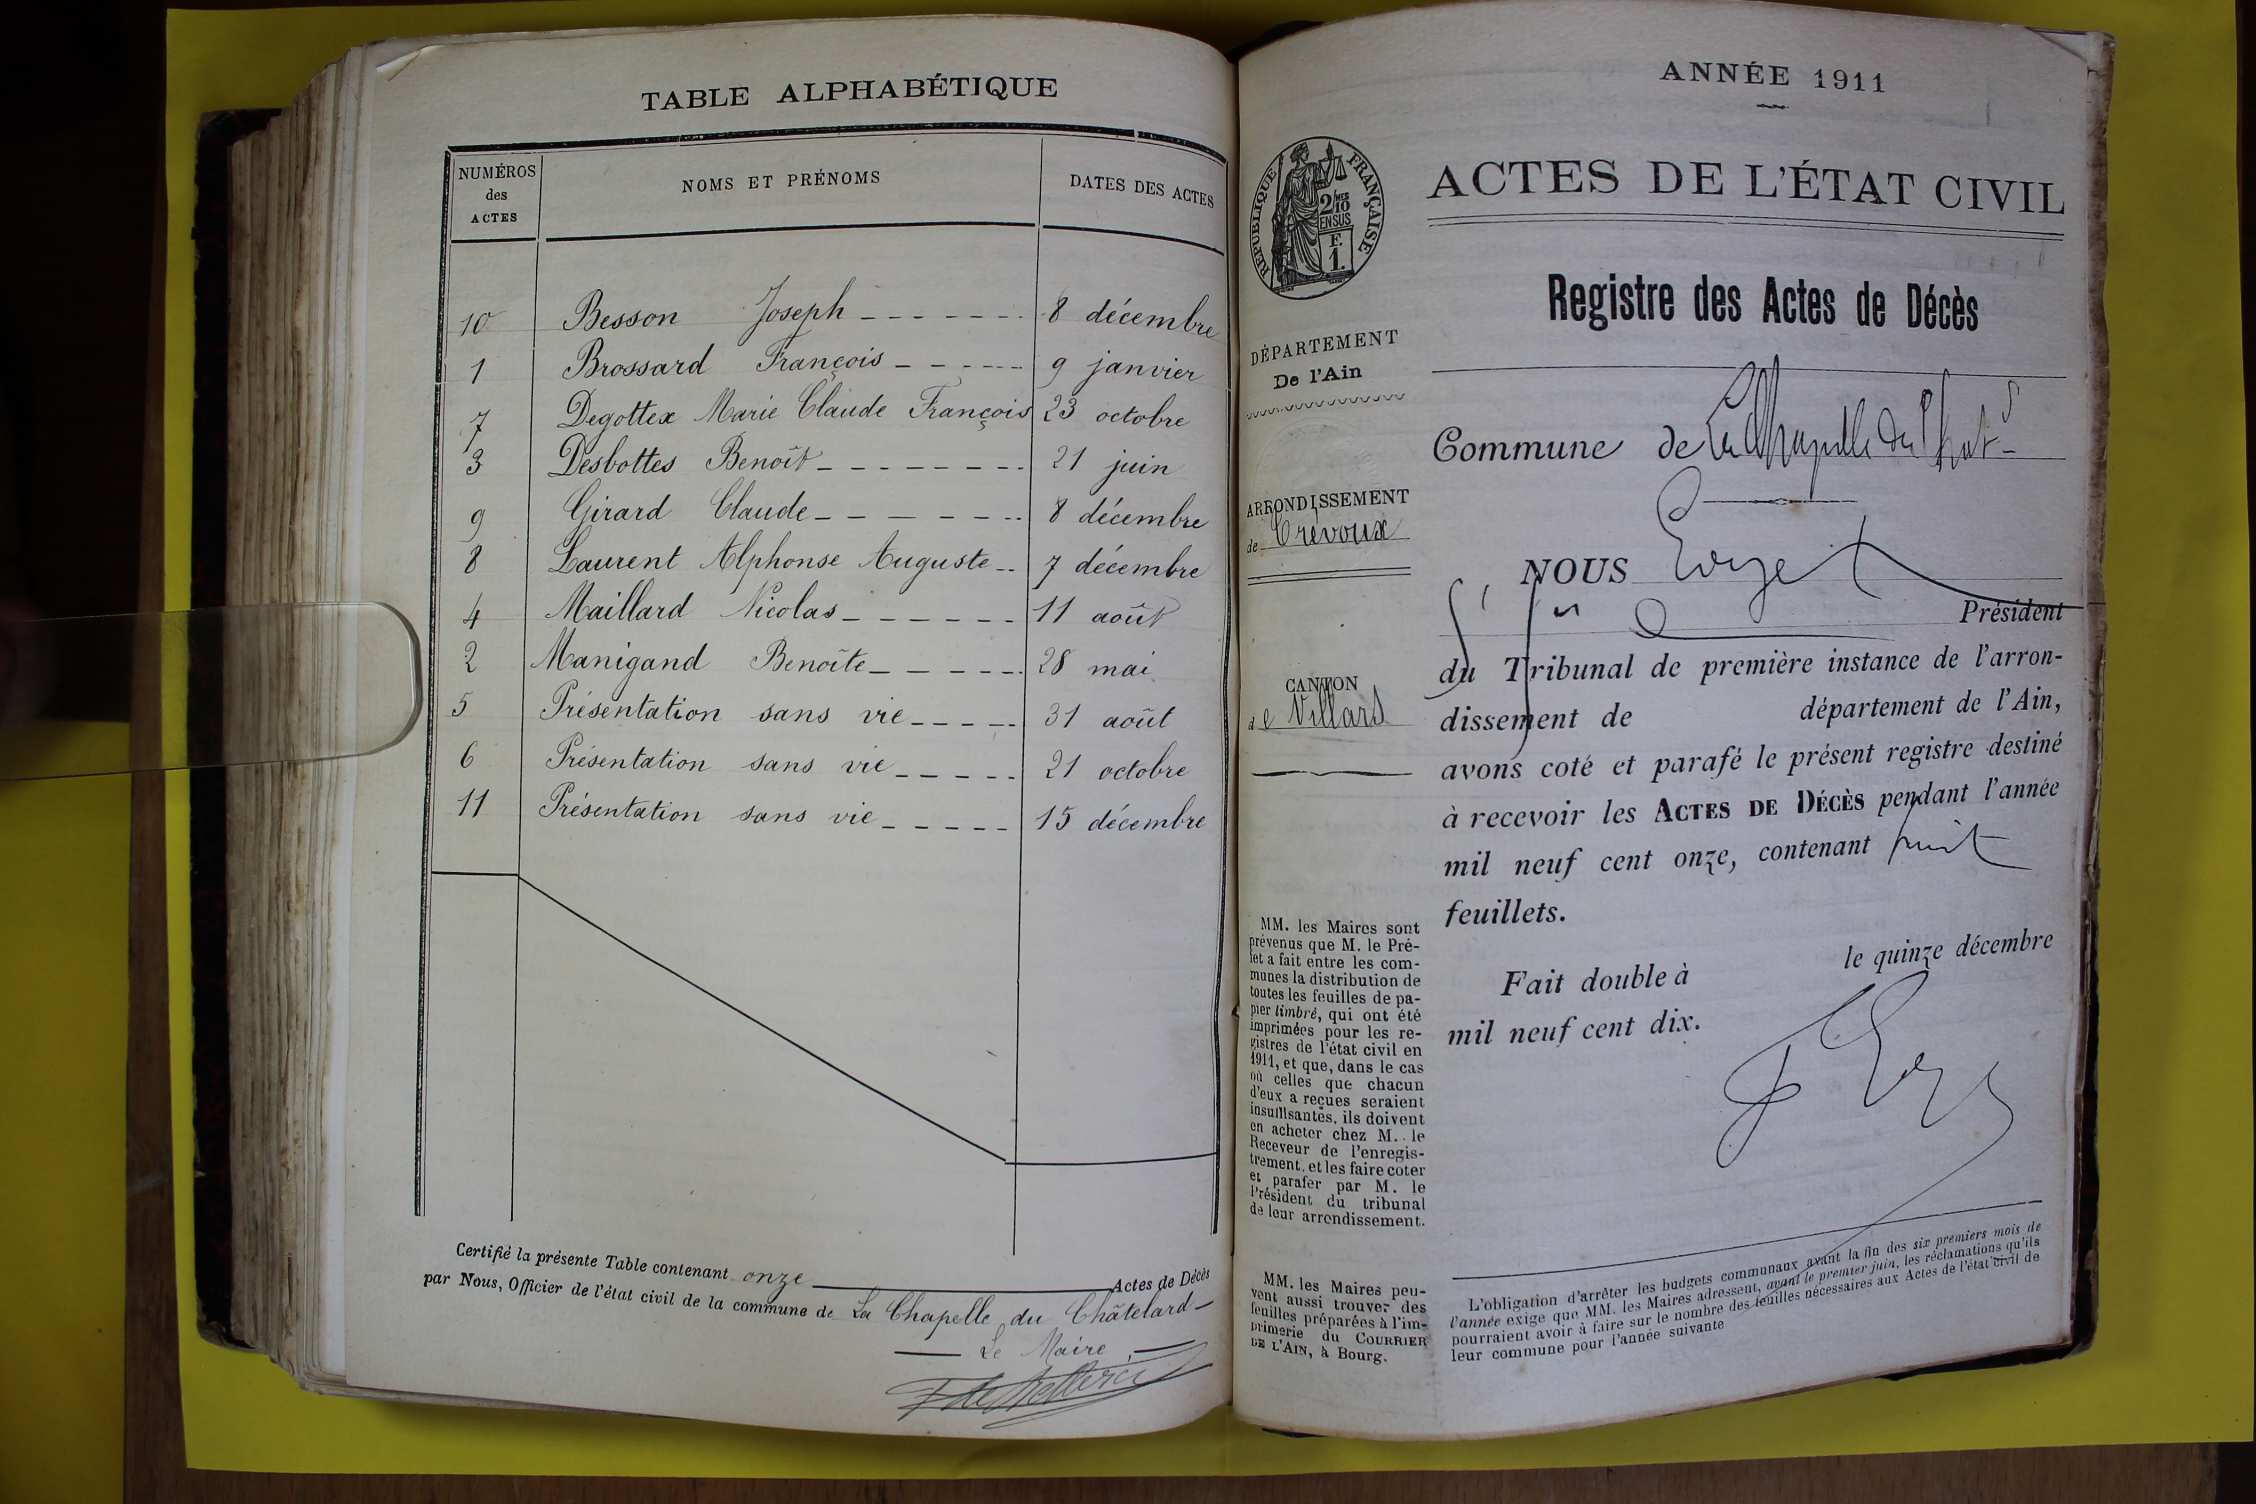 TABLE ALPHABÉTIQUE
NUMÉROS
des
ACTES
NOMS ET PRÉNOMS
DATES DES ACTES
10 Besson Joseph 8 décembre
1 Brossard François 9 janvier
7 Degottex Marie Claude François 23 octobre
3 Desbottes Benoît 21 juin
9 Girard Claude 8 décembre
8 Laurent Alphonse Auguste 7 décembre
4 Maillard Nicolas 11 août
2 Manigand Benoîte 28 mai
5 Présentation sans vie 31 août
6 Présentation sans vie 21 octobre
11 Présentation sans vie 15 décembre
Certifié la présente Table contenant onze Actes de Décès
par Nous, Officier de l'état civil de la commune de La Chapelle du Châtelard
Le Maire,
ANNÉE 1911
RÉPUBLIQUE FRANÇAISE
2/10
EN SUS
F.
1.
ACTES DE L'ÉTAT CIVIL
Registre des Actes de Décès
DÉPARTEMENT
De l'Ain
ARRONDISSEMENT
de Trévoux
CANTON
de Villars
Commune de La Chapelle du Chat
NOUS Loyet
Président
du Tribunal de première instance de l'arron-
dissement de département de l'Ain,
avons coté et parafé le présent registre destiné
à recevoir les ACTES DE DÉCÈS pendant l'année
mil neuf cent onze, contenant huit
feuillets.
Fait double à le quinze décembre
mil neuf cent dix.
MM. les Maires sont
prévenus que M. le Pré-
fet a fait entre les com-
munes la distribution de
toutes les feuilles de pa-
pier timbré, qui ont été
imprimées pour les re-
gistres de l'état civil en
1911, et que, dans le cas
où celles que chacun
d'eux a reçues seraient
insuffisantes, ils doivent
en acheter chez M. le
Receveur de l'enregis-
trement, et les faire coter
et parafer par M. le
Président du tribunal
de leur arrondissement.
MM. les Maires peu-
vent aussi trouver des
feuilles préparées à l'im-
primerie du COURRIER
DE L'AIN, à Bourg.
L'obligation d'arrêter les budgets communaux avant la fin des six premiers mois de
l'année exige que MM. les Maires adressent, avant le premier juin, les réclamations qu'ils
pourraient avoir à faire sur le nombre des feuilles nécessaires aux Actes de l'état civil de
leur commune pour l'année suivante